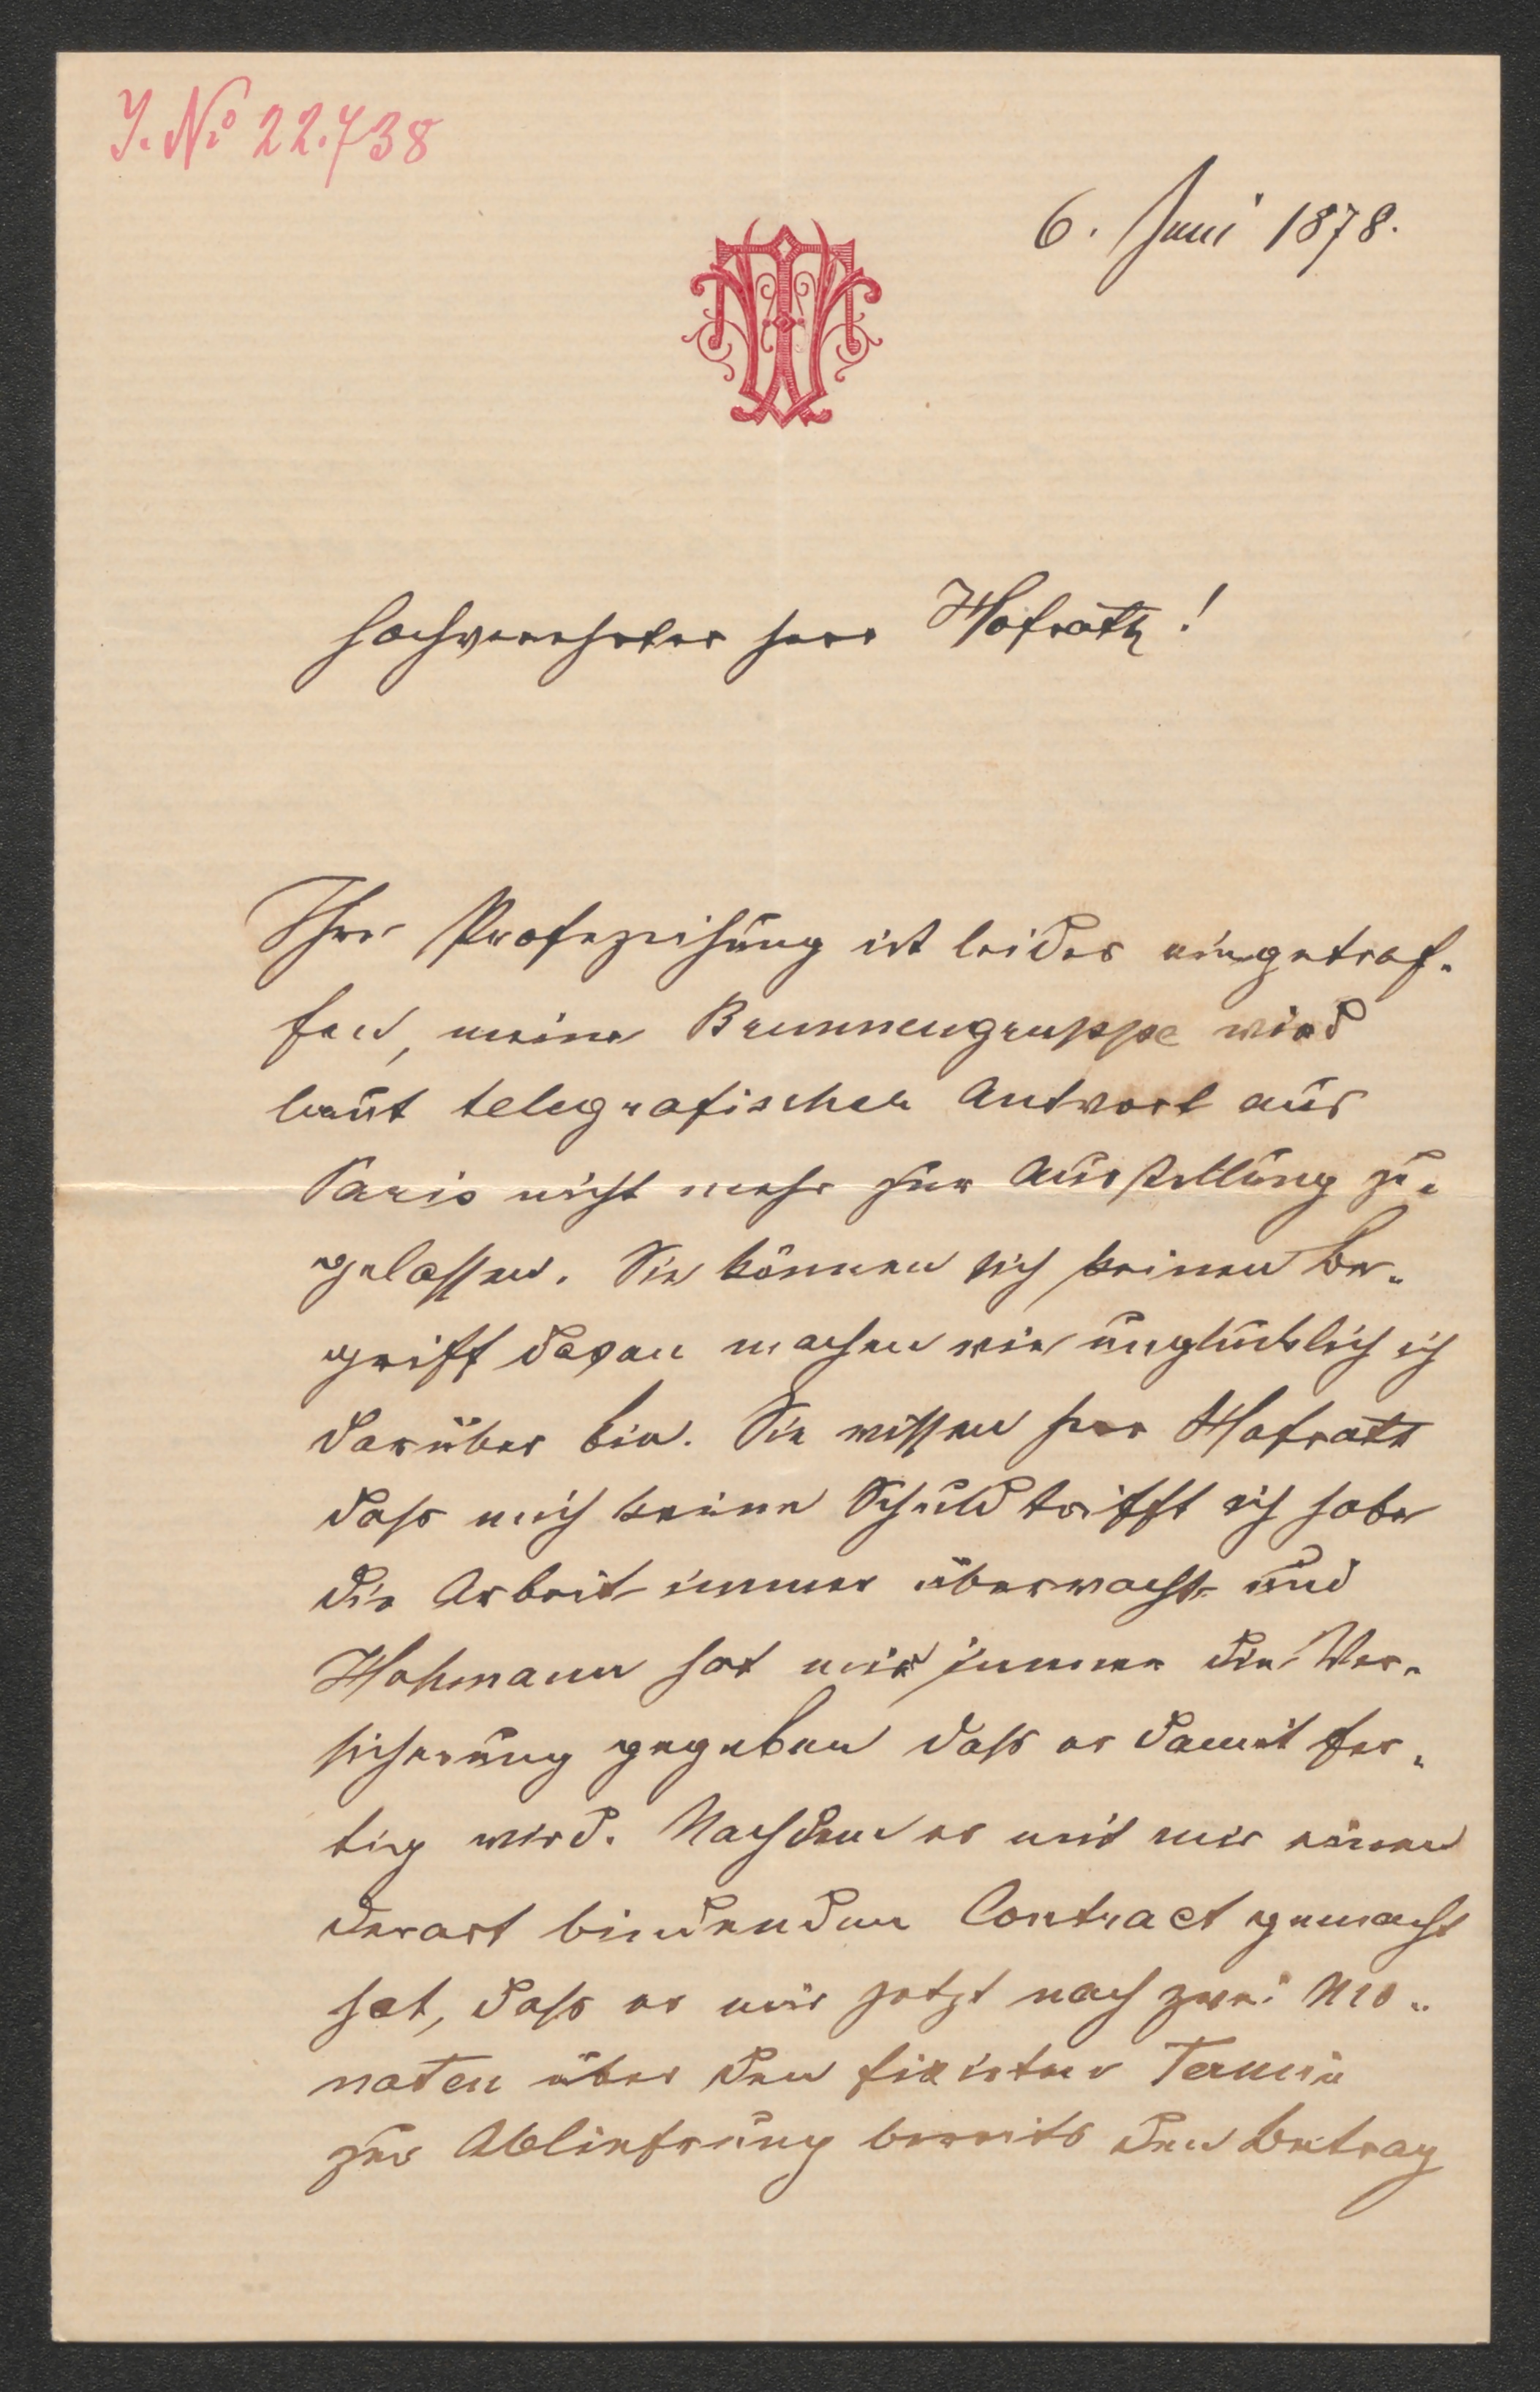 J. No 22.738
6. Juni 1878.
Hochverehrter Herr Hofrath!
Ihre Profezeihung ist leider eingetrof-
fen, meine Brunnengruppe wird
laut telegrafischer Antwort aus
Paris nicht mehr zur Ausstellung zu-
gelassen. Sie können sich keinen Be-
griff davon machen wie unglücklich ich
darüber bin. Sie wissen Herr Hofrath
dass mich keine Schuld trifft ich habe
die Arbeit immer überwacht und
Hohmann hat mir immer die Ver-
sicherung gegeben dass er damit fer-
tig wird. Nachdem er mit mir einen
derart bindenden Contract gemacht
hat, dass er mir jetzt nach zwei Mo-
naten über den fixirten Termin
zur Ablieferung bereits den Betrag